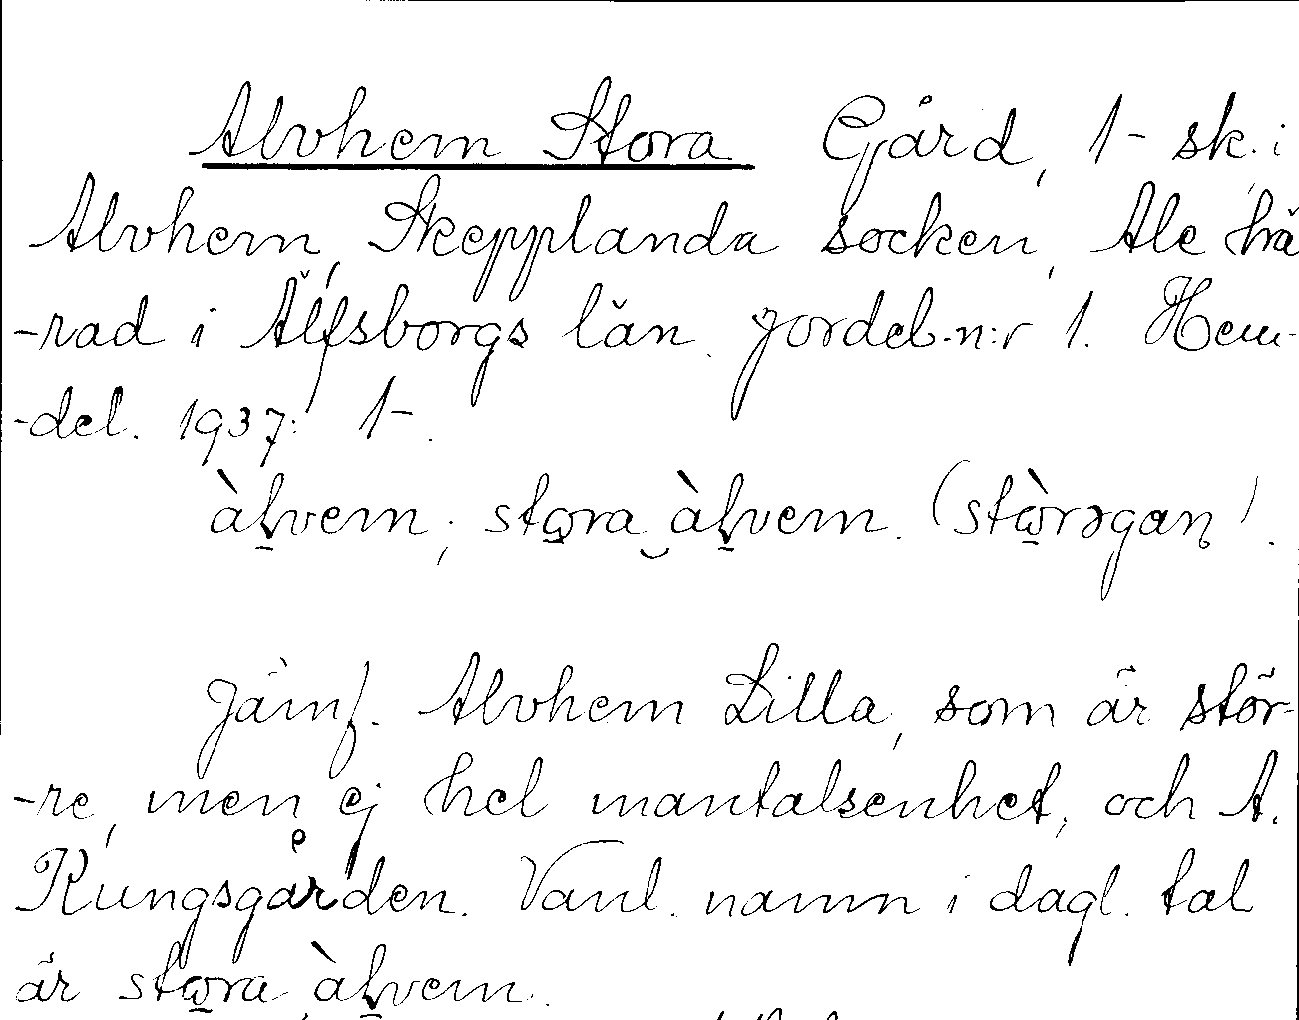 Alvhem Stora Gård, 1- sk. i
Alvhem, Skepplanda socken, Ale hä
-rad i Älfsborgs län. Jordeb.n:r 1. Hem-
-del. 1937: 1-.
àḷvem; stωra‿àḷvem. (stὼrəgaṇ).
Jämf. Alvhem Lilla, som är stör-
-re, men ej hel mantalsenhet, och A.
Kungsgården. Vanl. namn i dagl. tal
är stωra àḷvem.